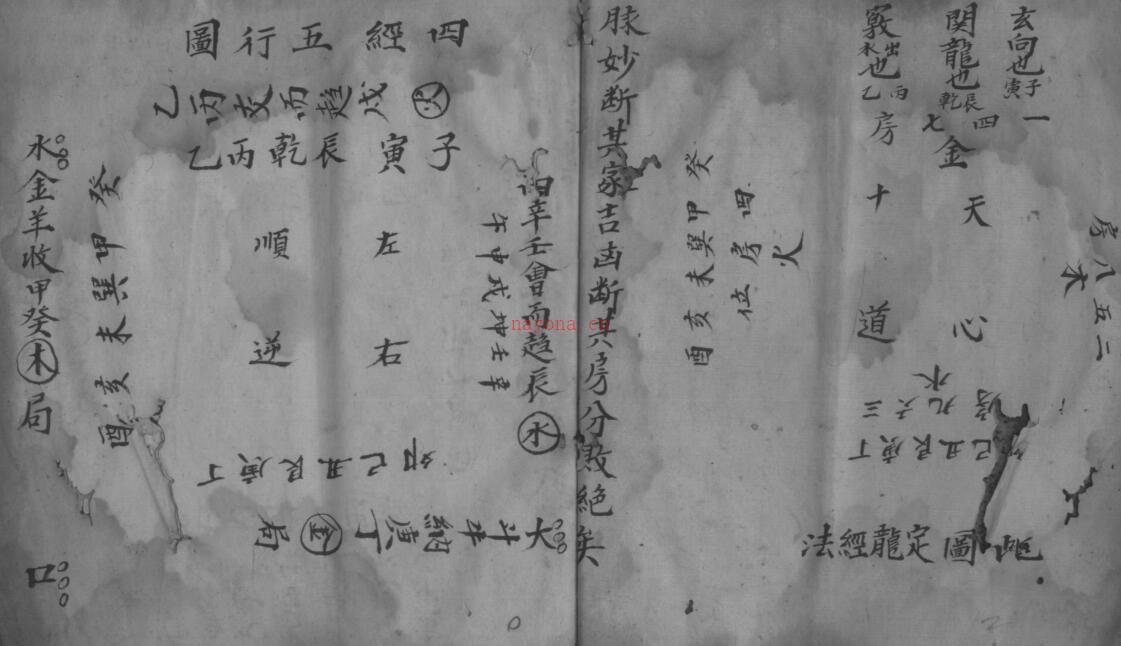 玄向也子寅
関龍也辰乾
竅水出也丙乙
一
四
七
金
房
天心
十道
房八五二
水
癸甲巽未亥酉
四房位
火
房三六九
水
己丑艮庚丁
圖
定龍經法
脉妙断其家吉凶断其房分敗絶矣
四經五行圖
乙丙交而趨戌火
子寅辰乾丙乙
辛壬會而趨辰水
午申戌坤壬辛
左右
順逆
卯己丑艮庚丁
斗牛納庚丁金局
大
癸甲巽未亥酉
水
金羊收甲癸木局
口
nayona.cn